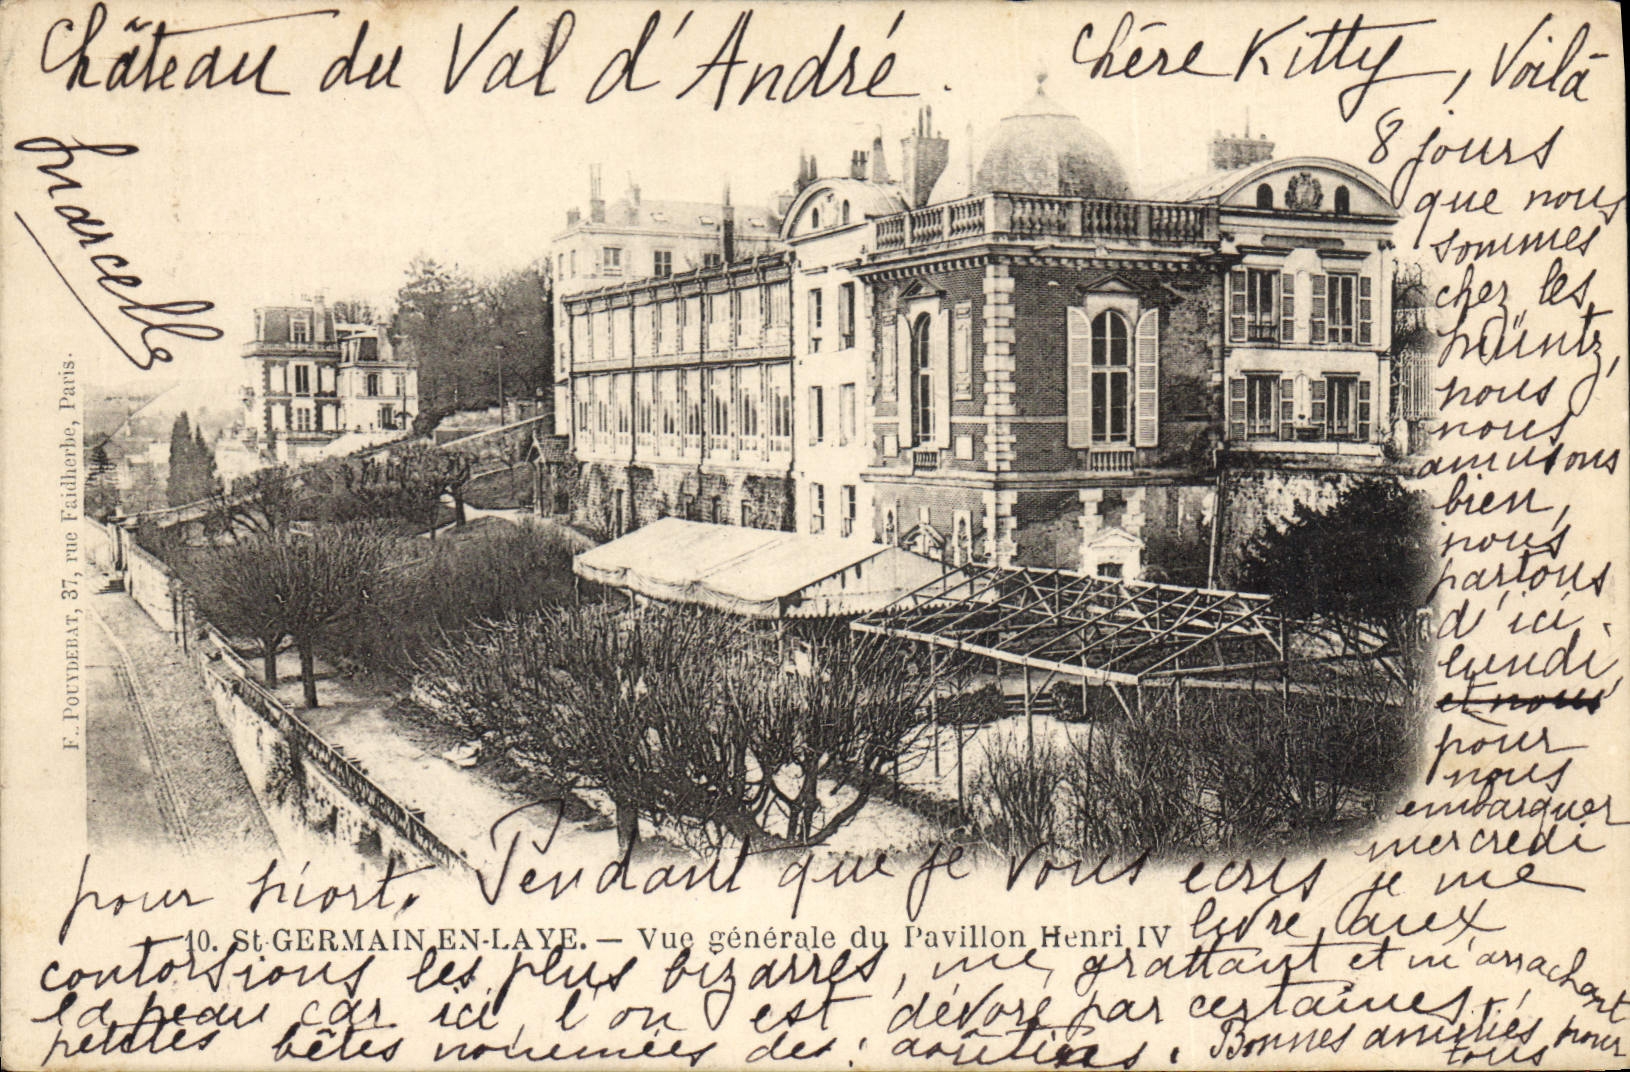 Château du Val d'André.
Chère Kitty, Voilà
8 jours
que nous
sommes
chez les
Müntz,
nous
nous
amusons
bien,
nous
partons
d'ici
lundi,
et nous
pour
nous
embarquer
mercredi
pour Niort. Pendant que je vous ecris je me
livre aux
contorsions les plus bizarres, me grattant et m'arrachant
la peau car ici, l'on est dévoré par certaines
petites bêtes nommées des: aoûtiens. Bonnes amitiés pour
tous
Marcelle
F. POUYDEBAT, 37, rue Faidherbe, Paris.
10. St-GERMAIN-EN-LAYE. — Vue générale du Pavillon Henri IV